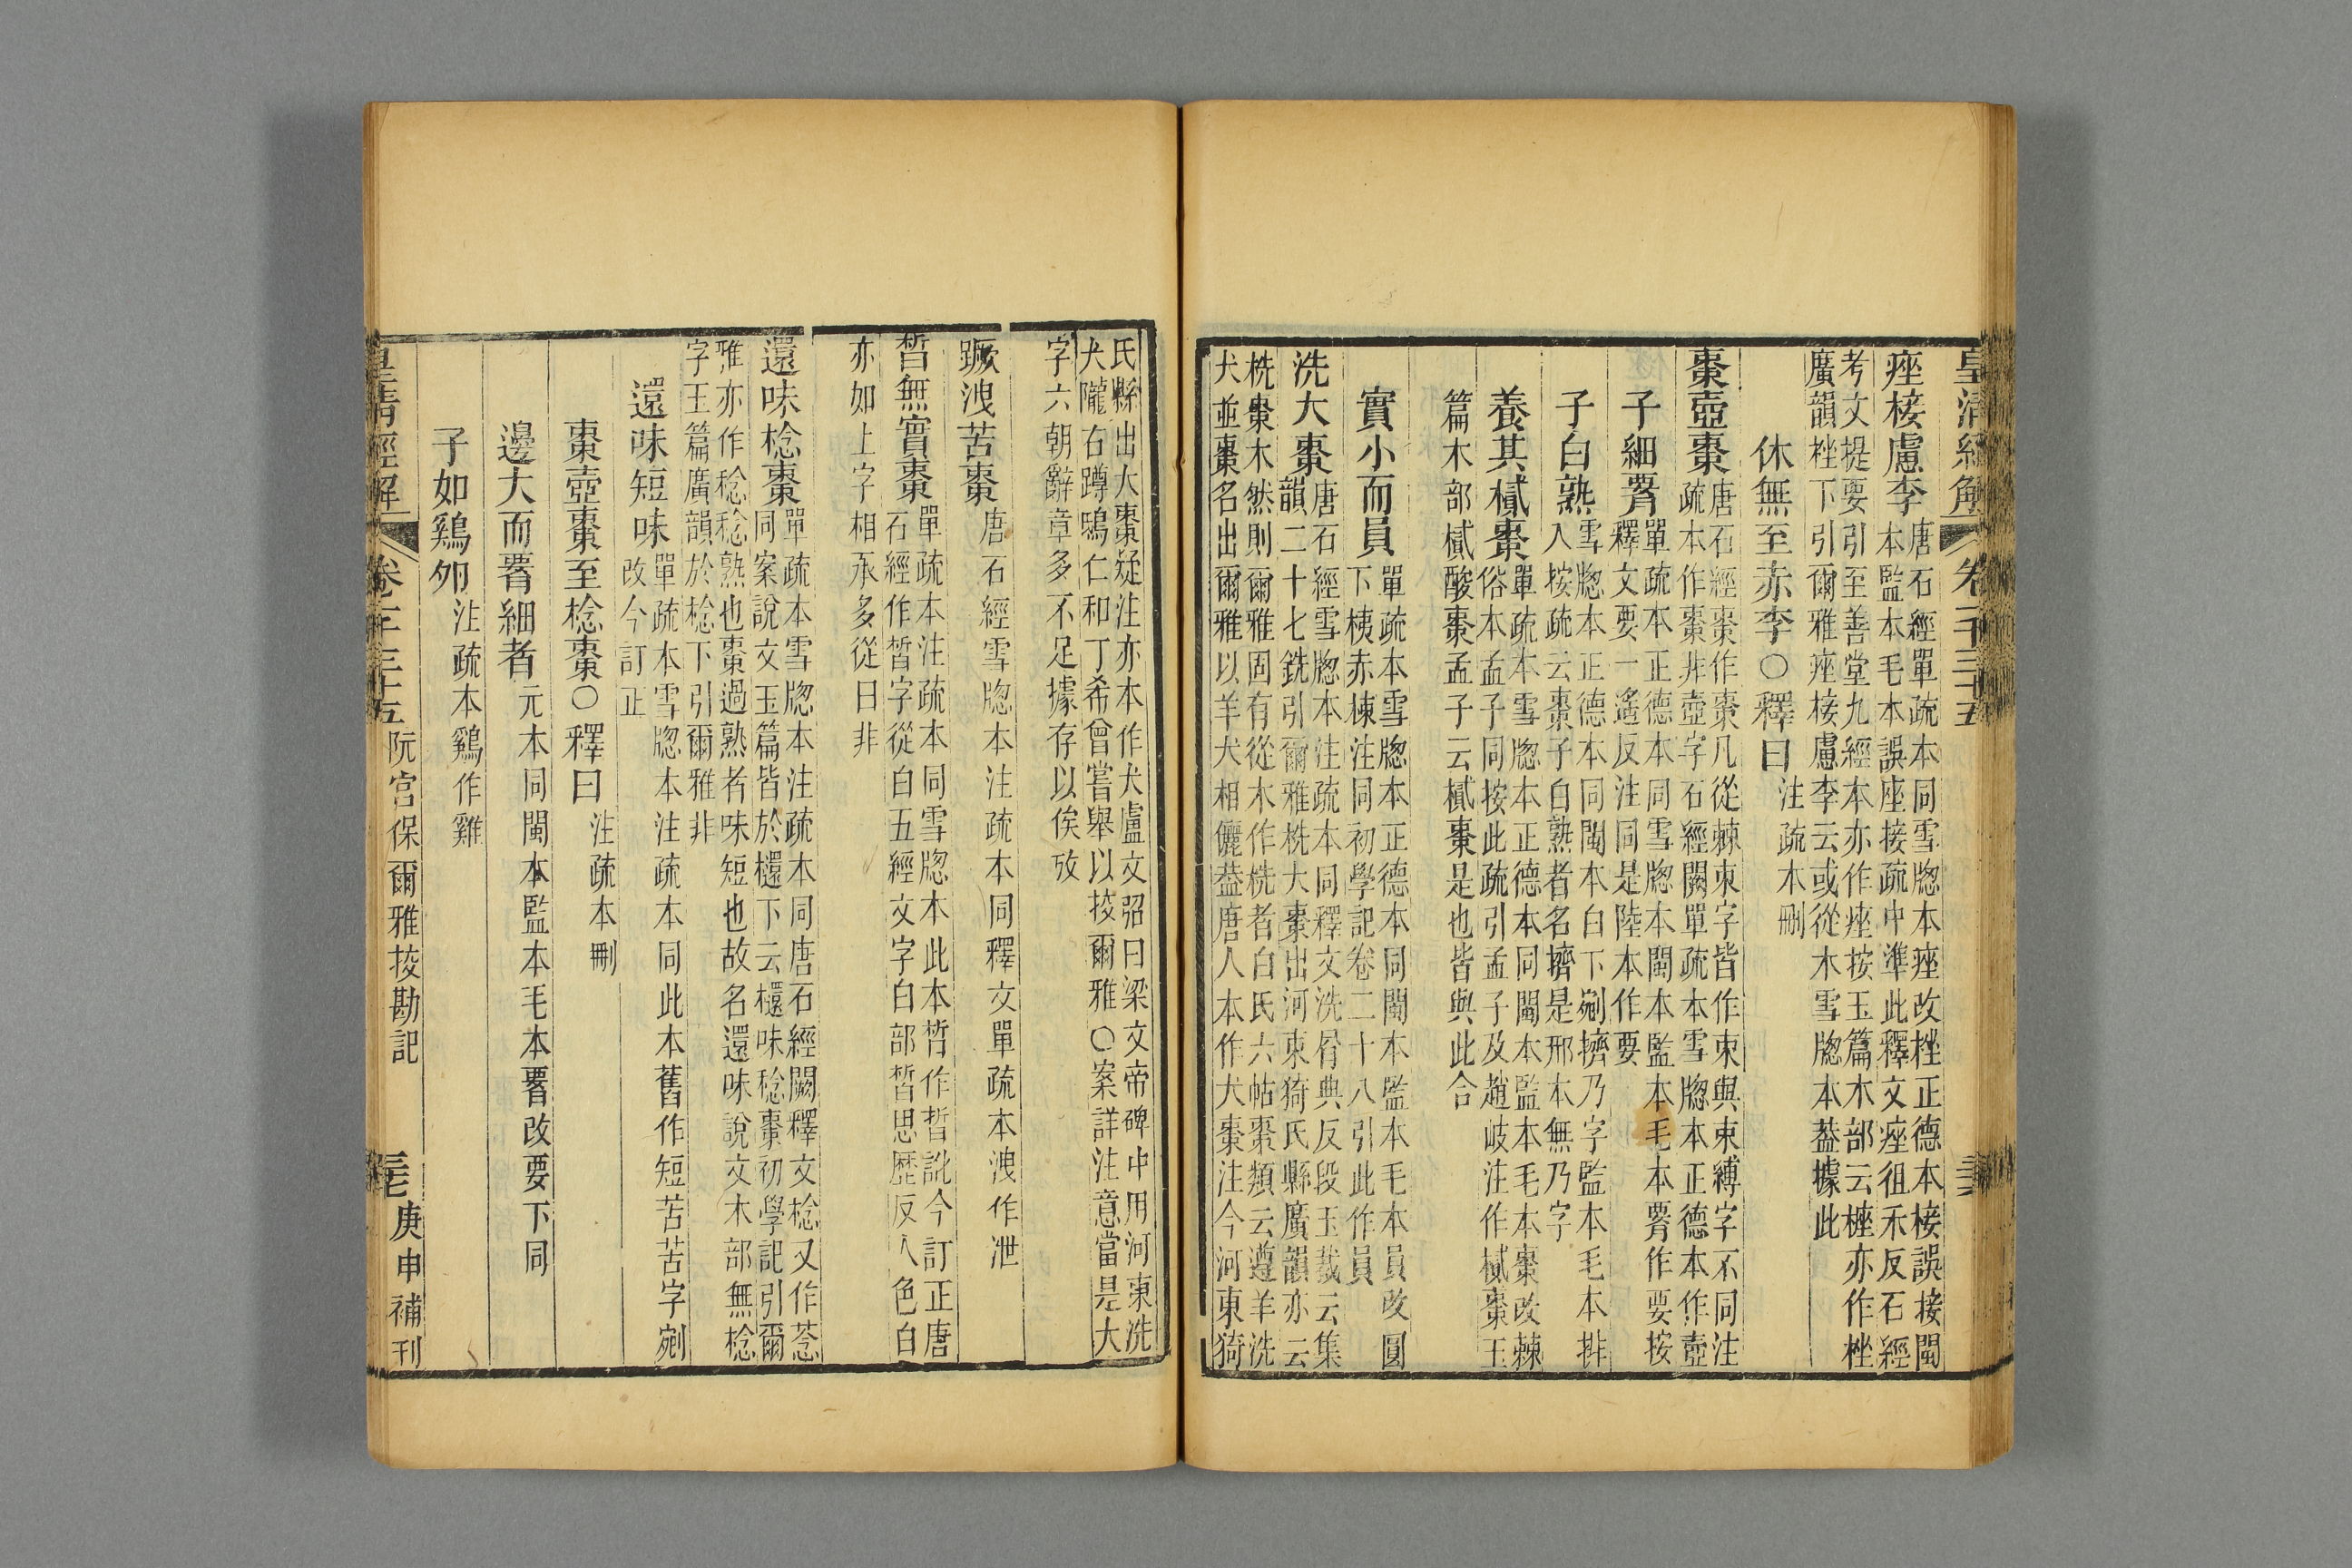 皇清經解 卷一千三十五
痤椄慮李唐石經單疏本同雪牕本痤改桎正德本椄誤接閩
本監本毛本誤座接疏中準此釋文痤徂禾反石經
考文提要引至善堂九經本亦作痤按玉篇木部云㭫亦作桎
廣韻桎下引爾雅痤椄慮李云或從木雪牕本葢據此
休無至赤李○釋曰注疏本刪
棗壺棗唐石經棗作棗凡從棘束字皆作束與束縛字不同注
疏本作棗非壺字石經闕單疏本雪牕本正德本作壼
子細䙅單疏本正德本同雪牕本閩本監本毛本䙅作要按
釋文要一遙反注同是陸本作要
子白熟雪牕本正德本同閩本白下剜擠乃字監本毛本排
入按疏云棗子白熟者名擠是邢本無乃字
養其樲棗單疏本雪牕本正德本同閩本監本毛本棗改棘
俗本孟子同按此疏引孟子及趙岐注作樲棗玉
篇木部樲酸棗孟子云樲棗是也皆與此合
實小而員單疏本雪牕本正德本同閩本監本毛本員改圓
下桋赤楝注同初學記卷二十八引此作員
洗大棗唐石經雪牕本注疏本同釋文洗屑典反段玉裁云集
韻二十七銑引爾雅桄大棗出河東猗氏縣廣韻亦云
桄棗木然則爾雅固有從木作桄者白氏六帖棗類云遵羊洗
犬並棗名出爾雅以羊犬相儷葢唐人本作犬棗注今河東猗
氏縣出大棗疑注亦本作犬盧文弨曰梁文帝碑中用河東洗
犬隴右蹲鴟仁和丁希曾嘗舉以挍爾雅○案詳注意當是大
字六朝辭章多不足據存以俟攷
蹶洩苦棗唐石經雪牕本注疏本同釋文單疏本洩作泄
晳無實棗單疏本注疏本同雪牕本此本晳作皙訛今訂正唐
石經作晳字從白五經文字白部晳思歷反人色白
亦如上字相承多從日非
還味棯棗單疏本雪牕本注疏本同唐石經闕釋文棯又作荵
同案說文玉篇皆於櫃下云櫃味稔棗初學記引爾
雅亦作稔稔熟也棗過熟者味短也故名還味說文木部無棯
字玉篇廣韻於棯下引爾雅非
還味短味單疏本雪牕本注疏本同此本舊作短苦苦字剜
改今訂正
棗壺棗至棯棗○釋曰注疏本刪
邊大而䙅細者元本同閩本監本毛本䙅改要下同
子如鷄卵注疏本鷄作雞
皇清經解 卷一千三十五 阮宮保爾雅挍勘記 庚申補刊